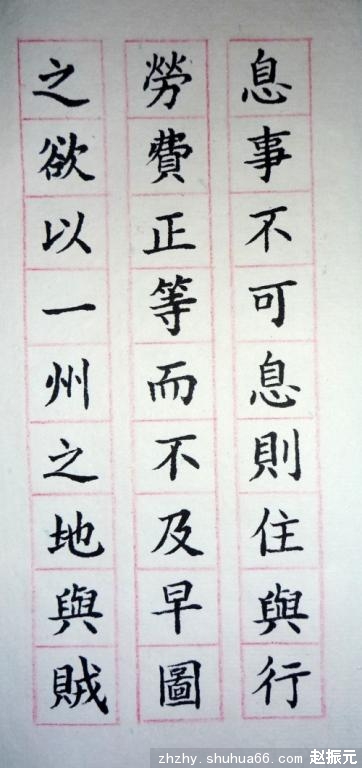 息事不可息則住與行
勞費正等而不及早圖
之欲以一州之地與賊
zhzhy.shuhua66.com 赵振元